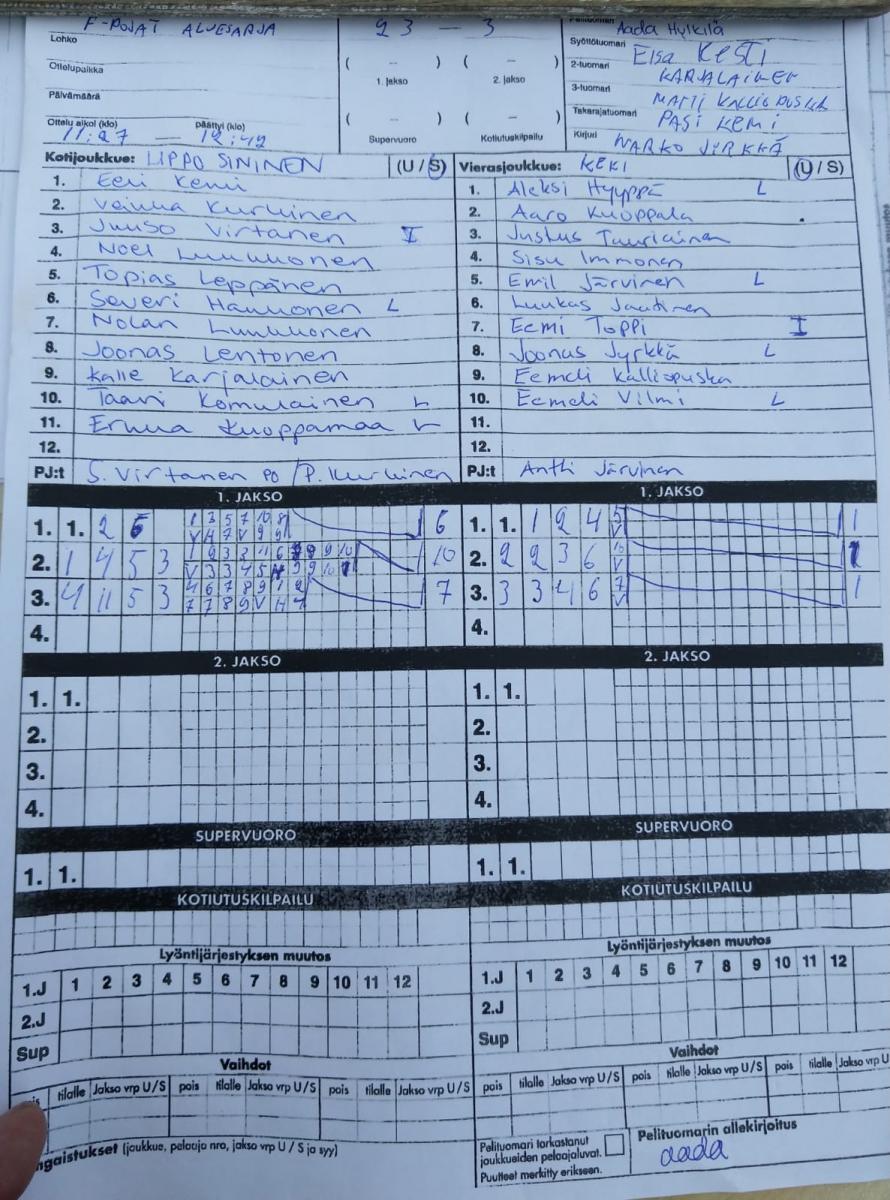 F-POJAT ALUESARJA
23 – 3
Aada Hylkilä
Lohko
( – ) ( – )
Syöttötuomari Elsa KESTI
Ottelupaikka
1. jakso 2. jakso
2-tuomari KARJALAINEN
Päivämäärä
3-tuomari MATTI KALLIOPUSKA
( – ) ( – )
Takarajatuomari PASI KEMI
Ottelu alkoi (klo) päättyi (klo)
11:27 — 12:42
Supervuoro Kotiutuskilpailu
Kirjuri MARKO JYRKKÄ
Kotijoukkue: LIPPO SININEN (U / S)
1. Eeri Kemi
2. Kurkinen
3. Juuso Virtanen I
4. Noel Luukkonen
5. Topias Leppänen
6. Severi Hannonen L
7. Nolan Luukkonen
8. Joonas Lentonen
9. Kalle Karjalainen
10. Taavi Komulainen L
11. Kuoppamaa L
12.
PJ:t S. Virtanen po / P. Kurkinen
Vierasjoukkue: KEKI (U / S)
1. Aleksi Hyyppä L
2. Aaro Kuoppala
3. Justus Tauriainen
4. Sisu Immonen
5. Emil Järvinen L
6. Luukas Jautinen
7. Eemi Toppi I
8. Joonas Jyrkkä L
9. Eemeli Kalliopuska
10. Eemeli Vilmi L
11.
12.
PJ:t Antti Järvinen
1. JAKSO
1. 1. 2 6 6
2. 1 4 5 3 10
3. 4 11 5 3 7
4.
1. JAKSO
1. 1. 1 2 4 5 V 1
2. 2 2 3 6 10 V 1
3. 3 3 4 6 7 V 1
4.
2. JAKSO
1. 1.
2.
3.
4.
2. JAKSO
1. 1.
2.
3.
4.
SUPERVUORO
1. 1.
SUPERVUORO
1. 1.
KOTIUTUSKILPAILU
KOTIUTUSKILPAILU
Lyöntijärjestyksen muutos
1.J 1 2 3 4 5 6 7 8 9 10 11 12
2.J
Sup
Lyöntijärjestyksen muutos
1.J 1 2 3 4 5 6 7 8 9 10 11 12
2.J
Sup
Vaihdot
tilalle Jakso vrp U/S pois tilalle Jakso vrp U/S pois tilalle Jakso vrp U/S
Vaihdot
pois tilalle Jakso vrp U/S pois tilalle Jakso vrp U/S pois tilalle Jakso vrp U
ngaistukset (joukkue, pelaaja nro, jakso vrp U / S ja syy)
Pelituomari tarkastanut
joukkueiden pelaajaluvat.
Puutteet merkitty erikseen.
Pelituomarin allekirjoitus
aada